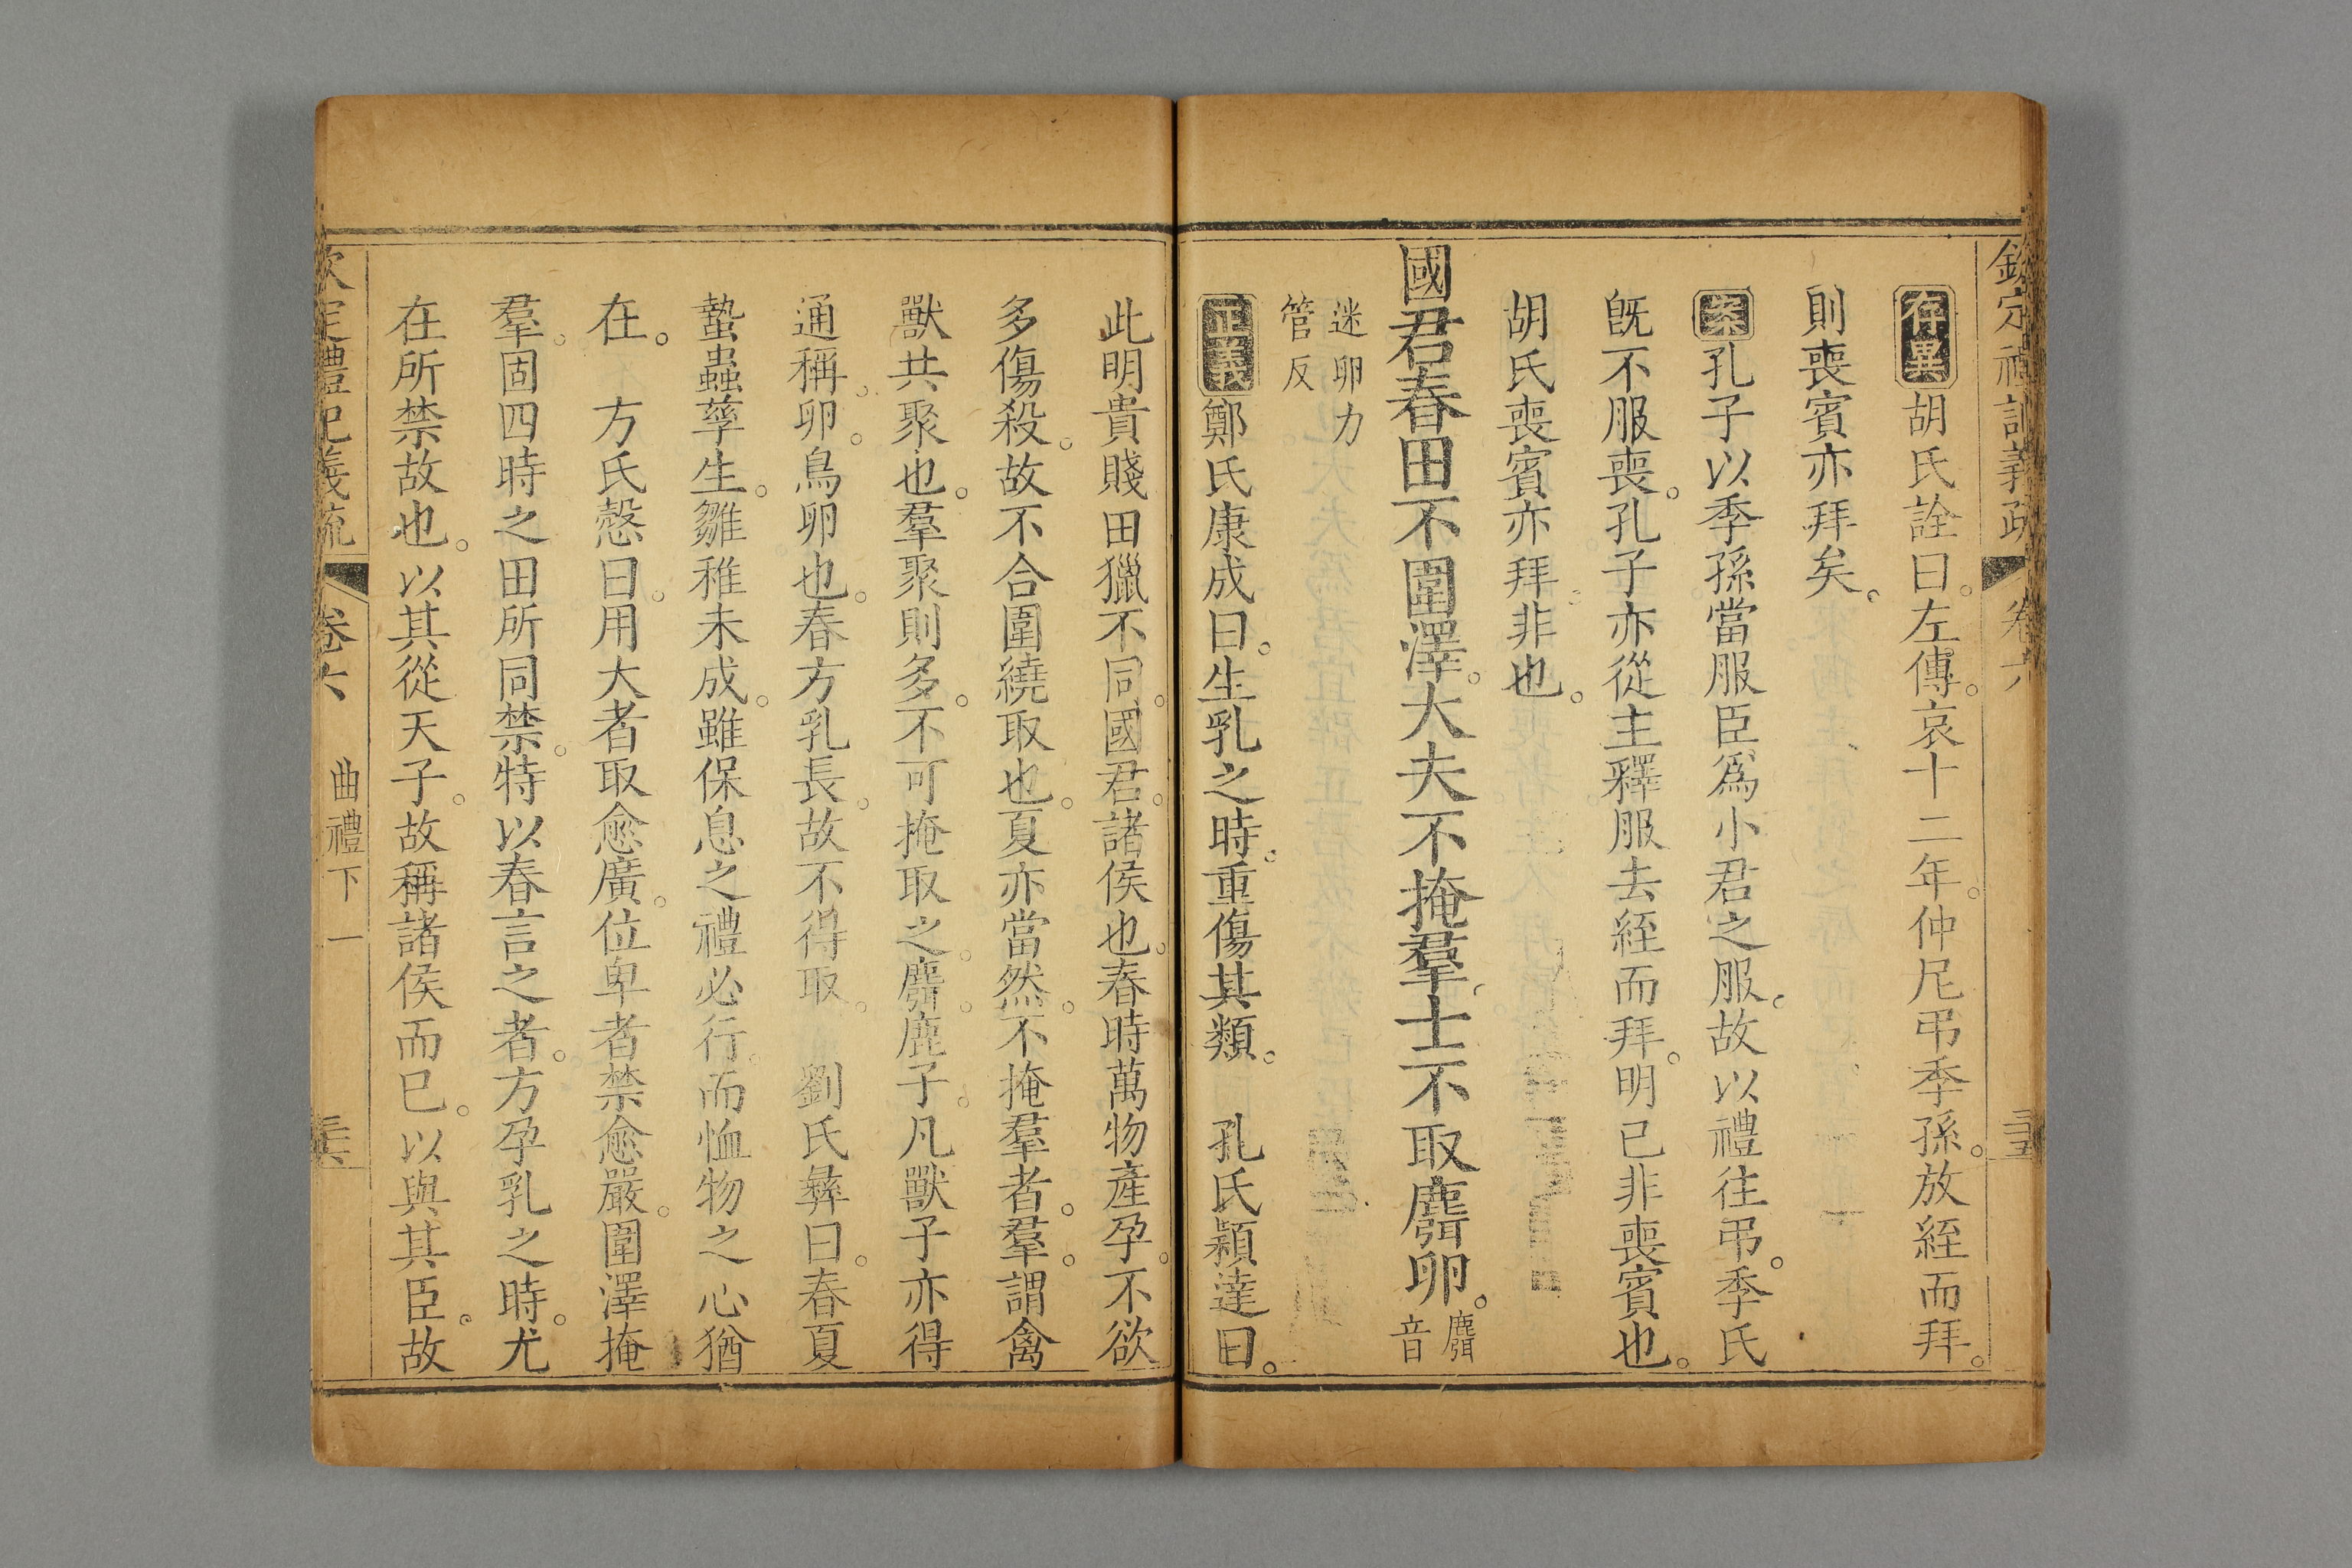 欽定禮記義疏 卷六 三十五
存異胡氏詮曰。左傳。哀十二年。仲尼弔季孫。放絰而拜。
則喪賓亦拜矣。
案孔子以季孫當服臣爲小君之服。故以禮往弔。季氏
旣不服喪。孔子亦從主釋服去絰而拜。明已非喪賓也。
胡氏喪賓亦拜。非也。
國君春田不圍澤。大夫不掩羣。士不取麛卵。麛音
迷卵力
管反
正義鄭氏康成曰。生乳之時。重傷其類。 孔氏穎達曰。
此明貴賤田獵不同。國君。諸侯也。春時萬物產孕。不欲
多傷殺。故不合圍繞取也。夏亦當然。不掩羣者。羣。謂禽
獸共聚也。羣聚則多。不可掩取之。麛。鹿子。凡獸子亦得
通稱。卵。鳥卵也。春方乳長。故不得取。 劉氏彝曰。春夏
蟄蟲孳生。雛稚未成。雖保息之禮必行。而恤物之心猶
在。 方氏慤曰。用大者取愈廣。位卑者禁愈嚴。圍澤掩
羣。固四時之田所同禁。特以春言之者。方孕乳之時。尤
在所禁故也。以其從天子。故稱諸侯而已。以與其臣。故
欽定禮記義疏 卷六 曲禮下 一 三十六